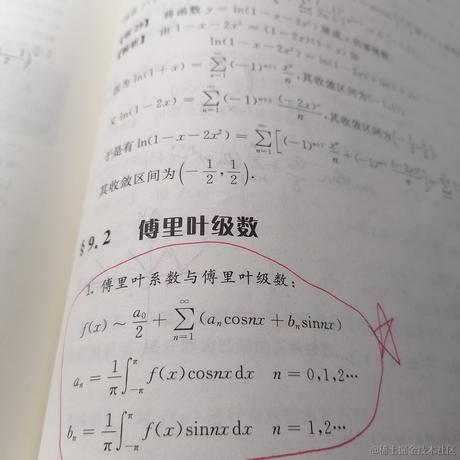 将函数 y = ln(1 − x − 2x²)
【解析】 由 1 − x − 2x² = (1 − 2x)(1 + x)
ln(1 − x − 2x²) =
因为 ln(1 + x) = ∑_{n=1}^{∞} (−1)^{n+1} x^n/n, 其收敛区间为
又 ln(1 − 2x) = ∑_{n=1}^{∞} (−1)^{n+1} (−2x)^n/n, 其收敛区间为
于是有 ln(1 − x − 2x²) = ∑_{n=1}^{∞} [(−1)^{n+1} x^n/n + (−1)^{n+1}
其收敛区间为 (−1/2, 1/2).
§9.2 傅里叶级数
1. 傅里叶系数与傅里叶级数:
f(x) ~ a₀/2 + ∑_{n=1}^{∞} (aₙcosnx + bₙsinnx)
aₙ = 1/π ∫_{−π}^{π} f(x)cosnxdx n = 0,1,2…
bₙ = 1/π ∫_{−π}^{π} f(x)sinnxdx n = 1,2…
@稀土掘金技术社区